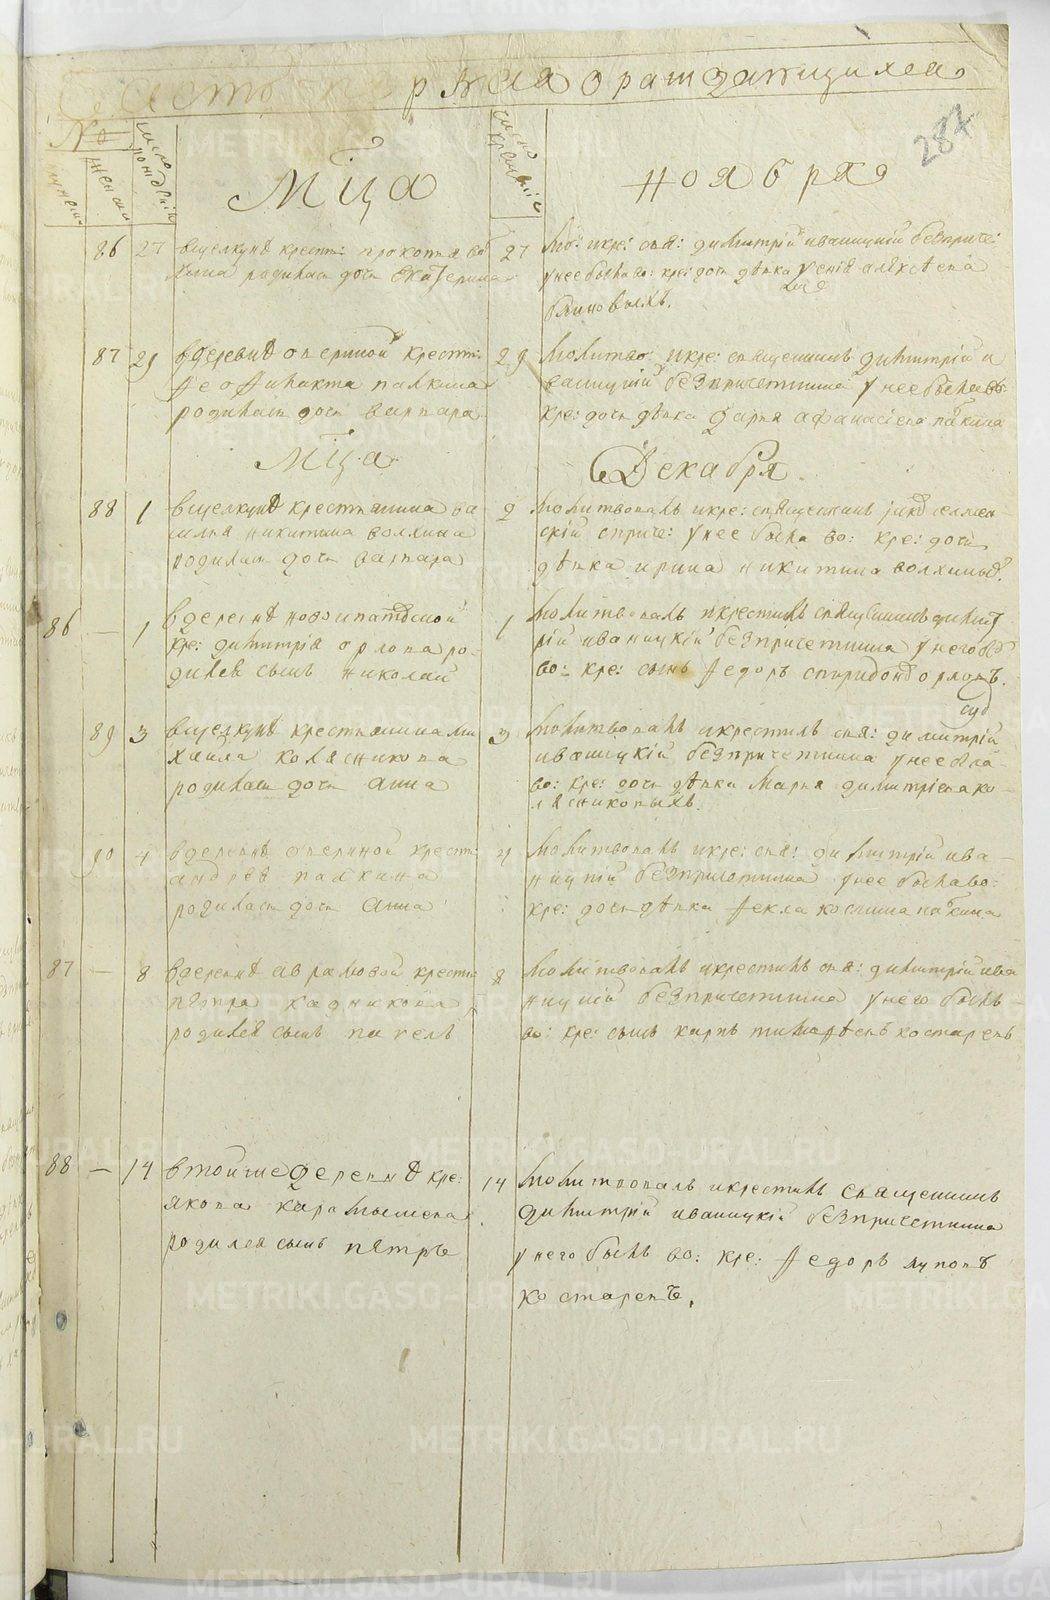 Часть первая о раждающихся
№
мужеска
женска
число рождения
Мца
число крещения
ноября
287
86 27 в щелкунѣ крест: прокопья во
хина родилась дочь Екатерина
27 мо: и кре: свя: димитрій иваницкій безприче:
у нее была во: кре: дочь дѣвка
блиновыхъ.
87 29 в деревнѣ Аверіной крест:
Феофилакта палкина
родилась дочь варвара
29 молитво: и кре: священникъ димитрій и
ваницкій без причетника у нее была во:
кре: дочь дѣвка дарья афанасіева палкина
Мца Декабря.
88 1 в щелкунѣ крестьянина ва
силья никитина волхина
родилась дочь варвара
2 молитвовалъ и кре: священникъ
скій с приче: у нее была во: кре: дочь
дѣвка ирина никитина волхиныхъ.
86 — 1 в деревнѣ новоипатовой
кре: димитрія орлова ро
дился сынъ николай
1 молитвовалъ и крестилъ священникъ димит
рій иваницкій без причетника у него бы
во: кре: сынъ Федоръ спиридоновъ орловъ.
89 3 в щелкунѣ крестьянина ми
хайла колясникова
родилась дочь анна
3 молитвовалъ и крестилъ свя: димитрій
иваницкій без причетника у нее была
во: кре: дочь дѣвка Марья димитріева ко
лясниковыхъ.
90 4 в деревнѣ Аверіной крест:
андрея палкина
родилась дочь анна
4 молитвовалъ и кре: свя: димитрій ива
ницкій без причетника у нее была во:
кре: дочь дѣвка Фекла космина палкина
87 — 8 в деревнѣ абрамовой крестья
петра кадникова
родился сынъ павелъ
8 молитвовалъ и крестилъ свя: димитрій ива
ницкій без причетника у него былъ
во: кре: сынъ карпъ тимофѣевъ костаревъ
88 — 14 в той же деревнѣ кре:
якова карамышева
родился сынъ пятръ
14 молитвовалъ и крестилъ священникъ
димитрій иваницкій без причетника
у него былъ во: кре: Федоръ луповъ
костаревъ.
METRIKI.GASO-URAL.RU